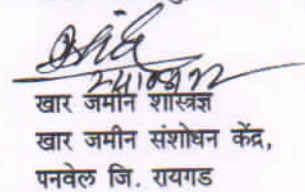 खार जमीन शास्त्रज्ञ
खार जमीन संशोधन केंद्र,
पनवेल जि. रायगड